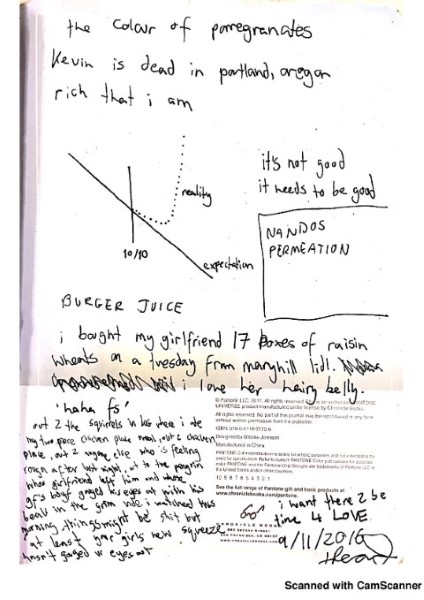 the colour of pomegranates
Kevin is dead in portland, oregon
rich that i am
reality
10/10
expectation
it's not good
it needs to be good
NANDOS
PERMEATION
BURGER JUICE
i bought my girlfriend 17 boxes of raisin
wheats on a tuesday from maryhill lidl.
i love her hairy belly.
'haha fs'
out 2 the squirrels in
my two piece chicken place meal, out 2 chicken
place, out 2 anyone else who is feeling
rough after last night, out to the penguin
whose girlfriend left him and whose
gf's boyf gouged his eyes out with his
beak in the grim vide i watched this
morning things might be shit but
at least your girls new squeeze
hasn't gouged ur eyes out
© Pantone LLC, 2011. All rights reserved.
All rights reserved. No part of this journal may be reproduced in any form
without written permission from the publisher.
Manufactured in China
See the full range of Pantone gift and book products at
www.chroniclebooks.com/pantone.
CHRONICLE BOOKS
i want there 2 be
time 4 LOVE
9/11/2016
Scanned with CamScanner